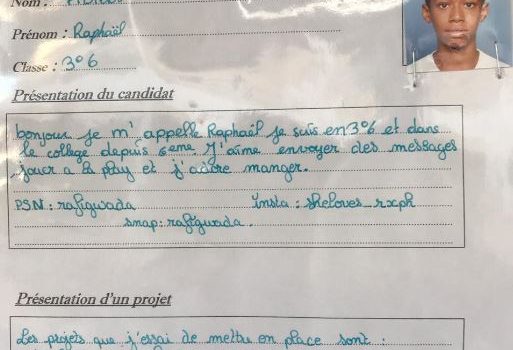 Nom :
Prénom : Raphaël
Classe : 3°6
Présentation du candidat
bonjour je m'appelle Raphaël je suis en 3°6 et dans
le collège depuis 6eme. J'aime envoyer des messages
jouer a la play et j'adore manger.
PSN : rafigwada Insta : sheloves_rxph
snap : rafigwada.
Présentation d'un projet
Les projets que j'essai de mettre en place sont :